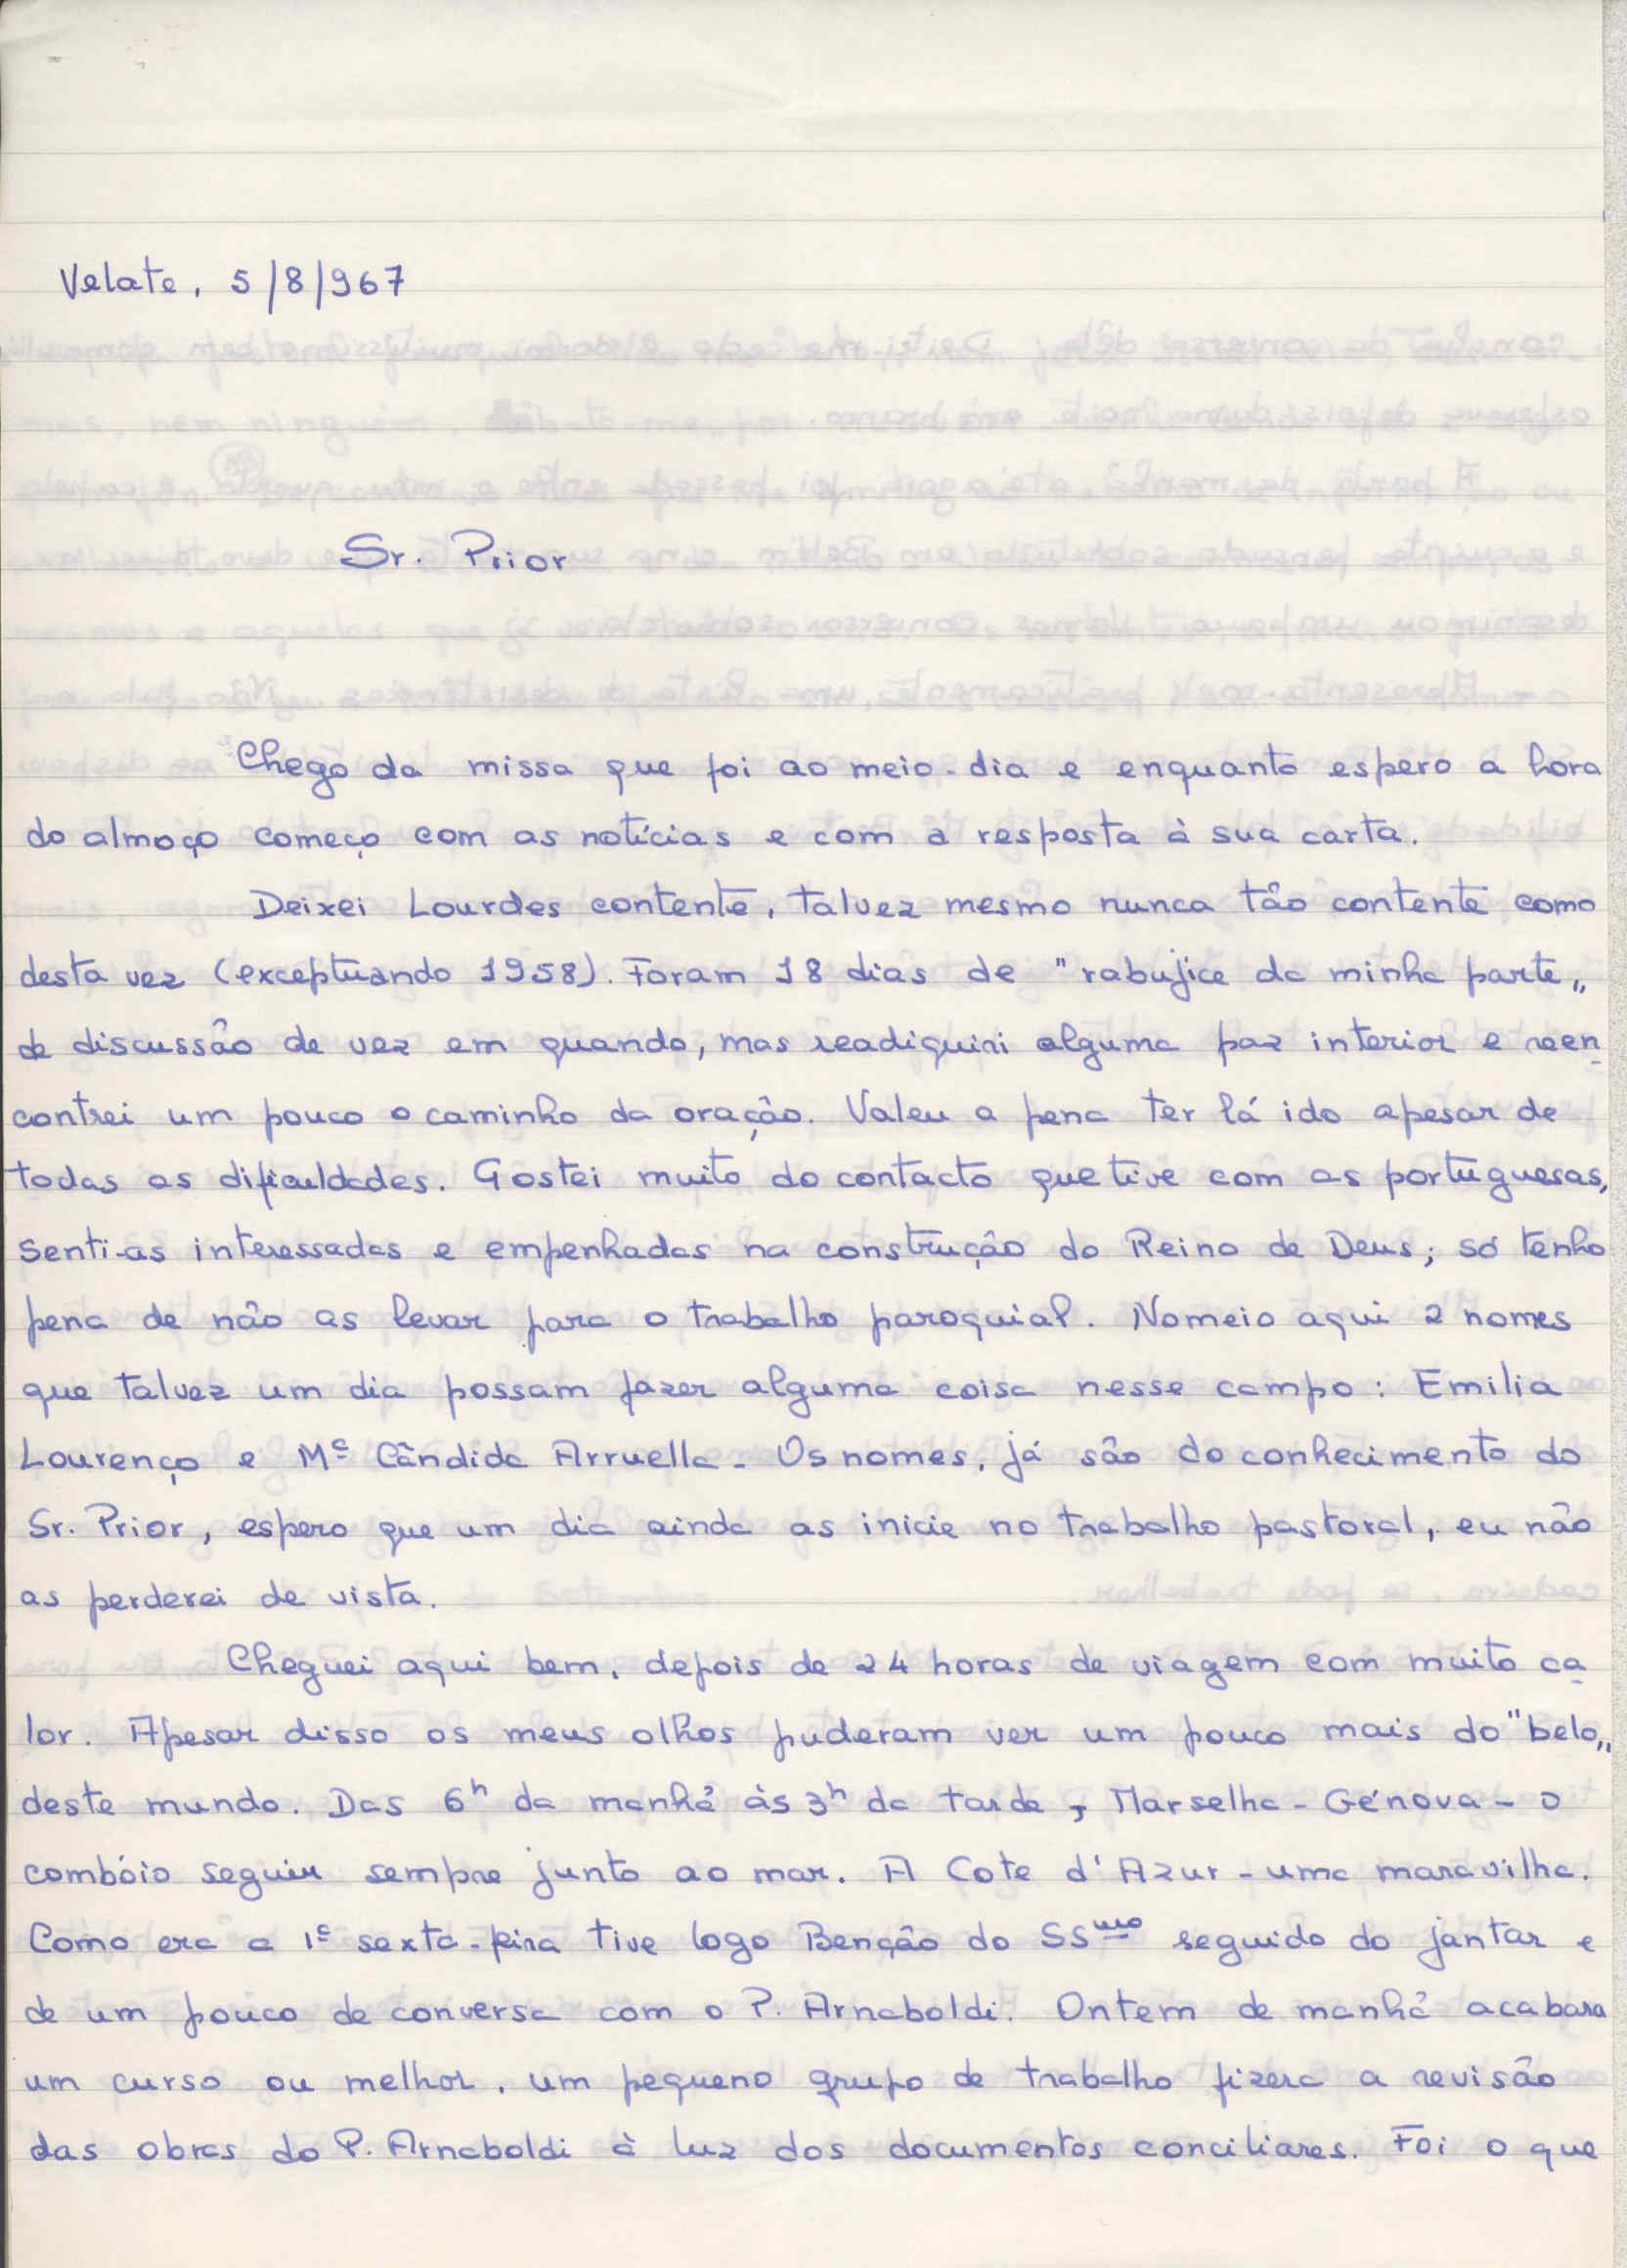 Velate, 5/8/967
Sr. Prior
Chego da missa que foi ao meio-dia e enquanto espero a hora
do almoço começo com as notícias e com a resposta à sua carta.
Deixei Lourdes contente, talvez mesmo nunca tão contente como
desta vez (exceptuando 1958). Foram 18 dias de "rabujice da minha parte„
de discussão de vez em quando, mas readiquiri alguma paz interior e reen
contrei um pouco o caminho da oração. Valeu a pena ter lá ido apesar de
todas as dificuldades. Gostei muito do contacto que tive com as portuguesas,
senti-as interessadas e empenhadas na construção do Reino de Deus; só tenho
pena de não as levar para o trabalho paroquial. Nomeio aqui 2 nomes
que talvez um dia possam fazer alguma coisa nesse campo: Emilia
Lourenço e Mª Cândida Arruella. Os nomes, já são do conhecimento do
Sr. Prior, espero que um dia ainda as inicie no trabalho pastoral, eu não
as perderei de vista.
Cheguei aqui bem, depois de 24 horas de viagem com muito ca
lor. Apesar disso os meus olhos puderam ver um pouco mais do "belo„
deste mundo. Das 6h da manhã às 3h da tarde, Marselha - Génova - o
combóio seguiu sempre junto ao mar. A Cote d'Azur - uma maravilha.
Como era a 1ª sexta-feira tive logo Benção do SSmo seguido do jantar e
de um pouco de conversa com o P. Arnaboldi. Ontem de manhã acabara
um curso ou melhor, um pequeno grupo de trabalho fizera a revisão
das obras do P. Arnaboldi à luz dos documentos conciliares. Foi o que